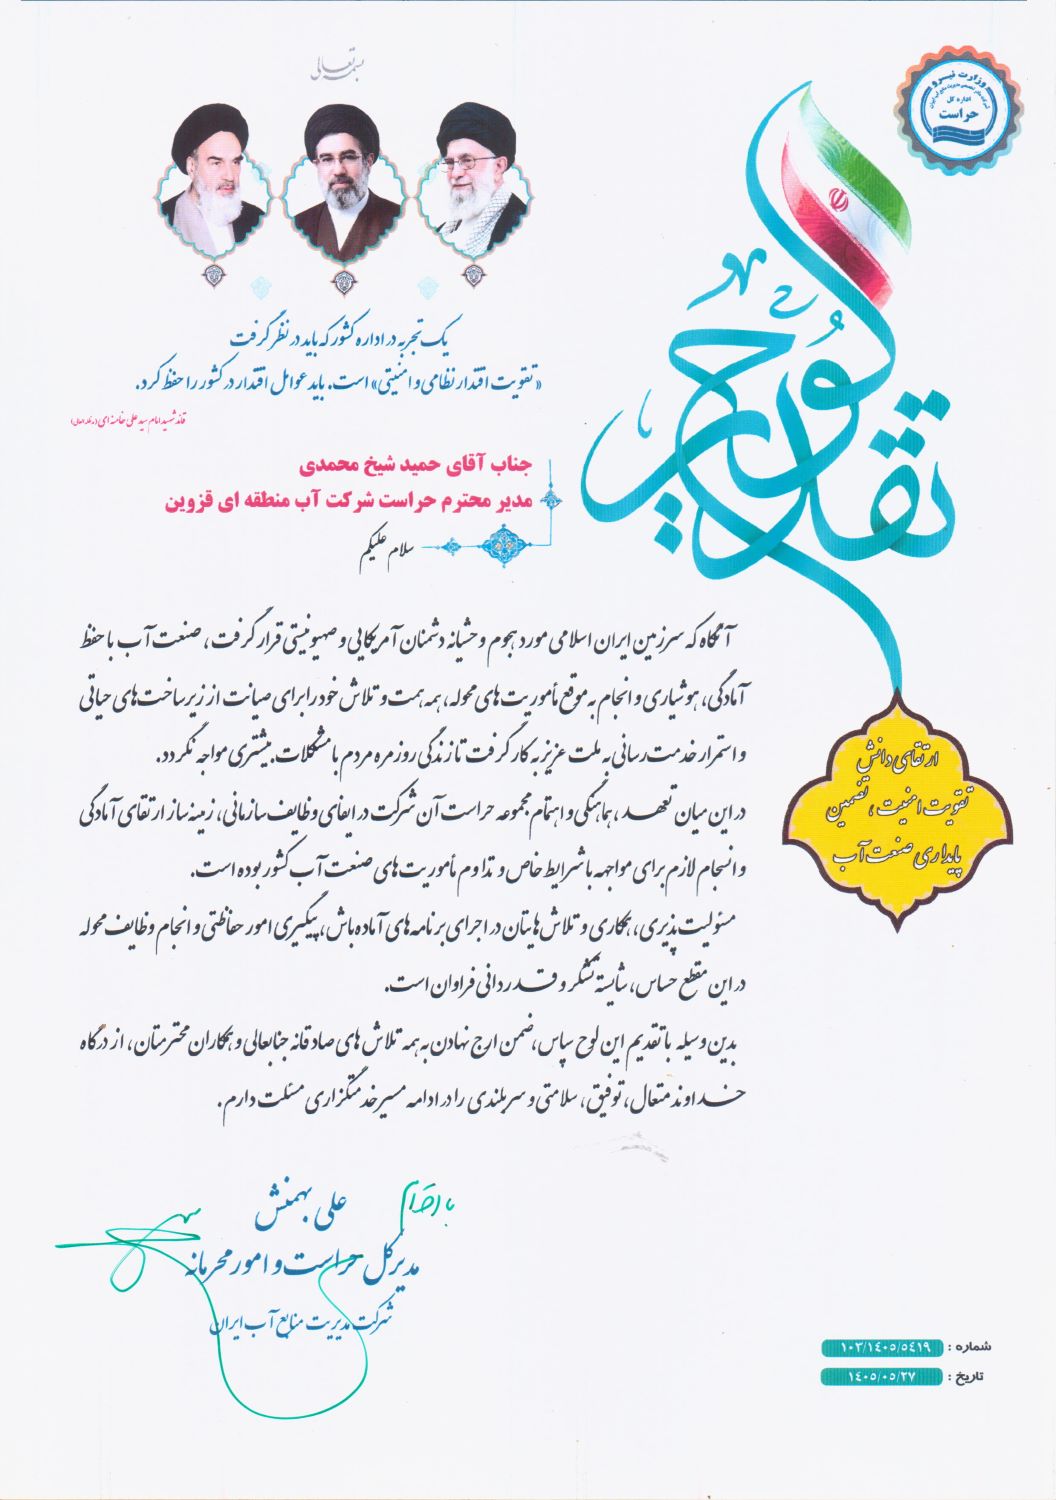 بسمه تعالی
وزارت نیرو
اداره کل
حراست
تقدیر
لوح
یک تجربه در اداره کشور که باید در نظر گرفت
«تقویت اقتدار نظامی و امنیتی» است. باید عوامل اقتدار در کشور را حفظ کرد.
قائد شهید امام سید علی خامنه ای
جناب آقای حمید شیخ محمدی
مدیر محترم حراست شرکت آب منطقه ای قزوین
سلام علیکم
آنگاه که سرزمین ایران اسلامی مورد هجوم وحشیانه دشمنان آمریکایی و صهیونیستی قرار گرفت، صنعت آب با حفظ
آمادگی، هوشیاری و انجام به موقع مأموریت های محوله، همه همت و تلاش خود را برای صیانت از زیرساخت های حیاتی
و استمرار خدمت رسانی به ملت عزیز به کار گرفت تا زندگی روزمره مردم با مشکلات بیشتری مواجه نگردد.
در این میان تعهد، هماهنگی و اهتمام مجموعه حراست آن شرکت در ایفای وظایف سازمانی، زمینه ساز ارتقای آمادگی
و انسجام لازم برای مواجهه با شرایط خاص و تداوم مأموریت های صنعت آب کشور بوده است.
مسئولیت پذیری، همکاری و تلاش هایتان در اجرای برنامه های آماده باش، پیگیری امور حفاظتی و انجام وظایف محوله
در این مقطع حساس، شایسته تشکر و قدردانی فراوان است.
بدین وسیله با تقدیم این لوح سپاس، ضمن ارج نهادن به همه تلاش های صادقانه جنابعالی و همکاران محترمتان، از درگاه
خداوند متعال، توفیق، سلامتی و سربلندی را در ادامه مسیر خدمتگزاری مسئلت دارم.
ارتقای دانش
تقویت امنیت، تضمین
پایداری صنعت آب
با احترام
علی بهمنش
مدیرکل حراست و امور محرمانه
شرکت مدیریت منابع آب ایران
شماره : ۱۰۳/۱٤۰۵/۵٤۱۹
تاریخ : ۱٤۰۵/۰۵/۲۷